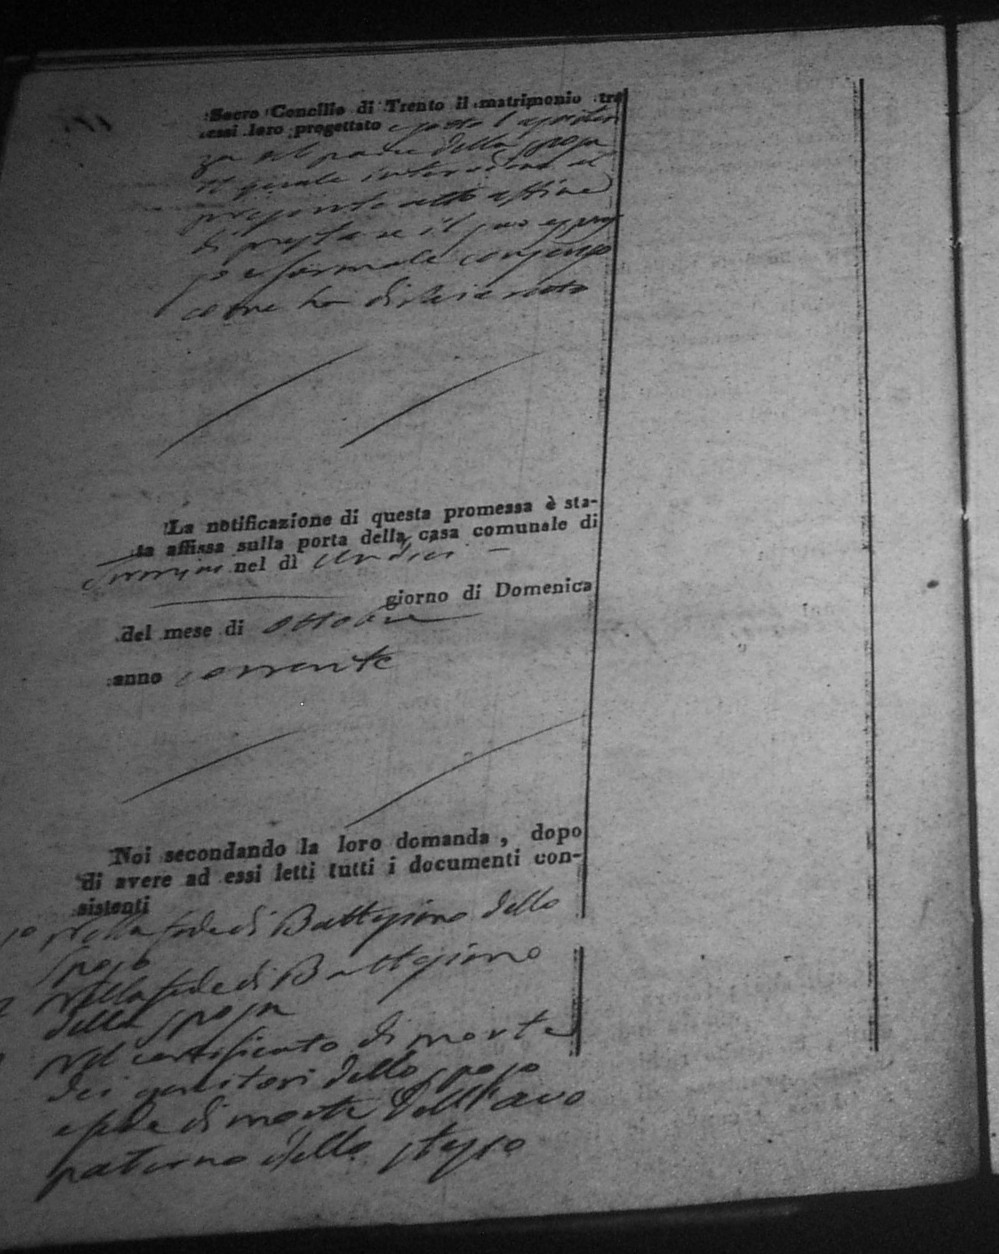 Sacro Concilio di Trento il matrimonio tra
essi loro progettato e posto l'assisten
za del padre della sposa
il quale interviene al
presente atto affine
di prestare il suo espres
so e formale consenso
come ha dichiarato
La notificazione di questa promessa è sta-
ta affissa sulla porta della casa comunale di
nel dì undici
giorno di Domenica
del mese di ottobre
anno corrente
Noi secondando la loro domanda, dopo
di avere ad essi letti tutti i documenti con-
sistenti
1º Nella fede di Battesimo dello
sposo
2 Nella fede di Battesimo
della sposa
Nel certificato di morte
dei genitori dello sposo
e fede di morte dell'avo
paterno dello stesso